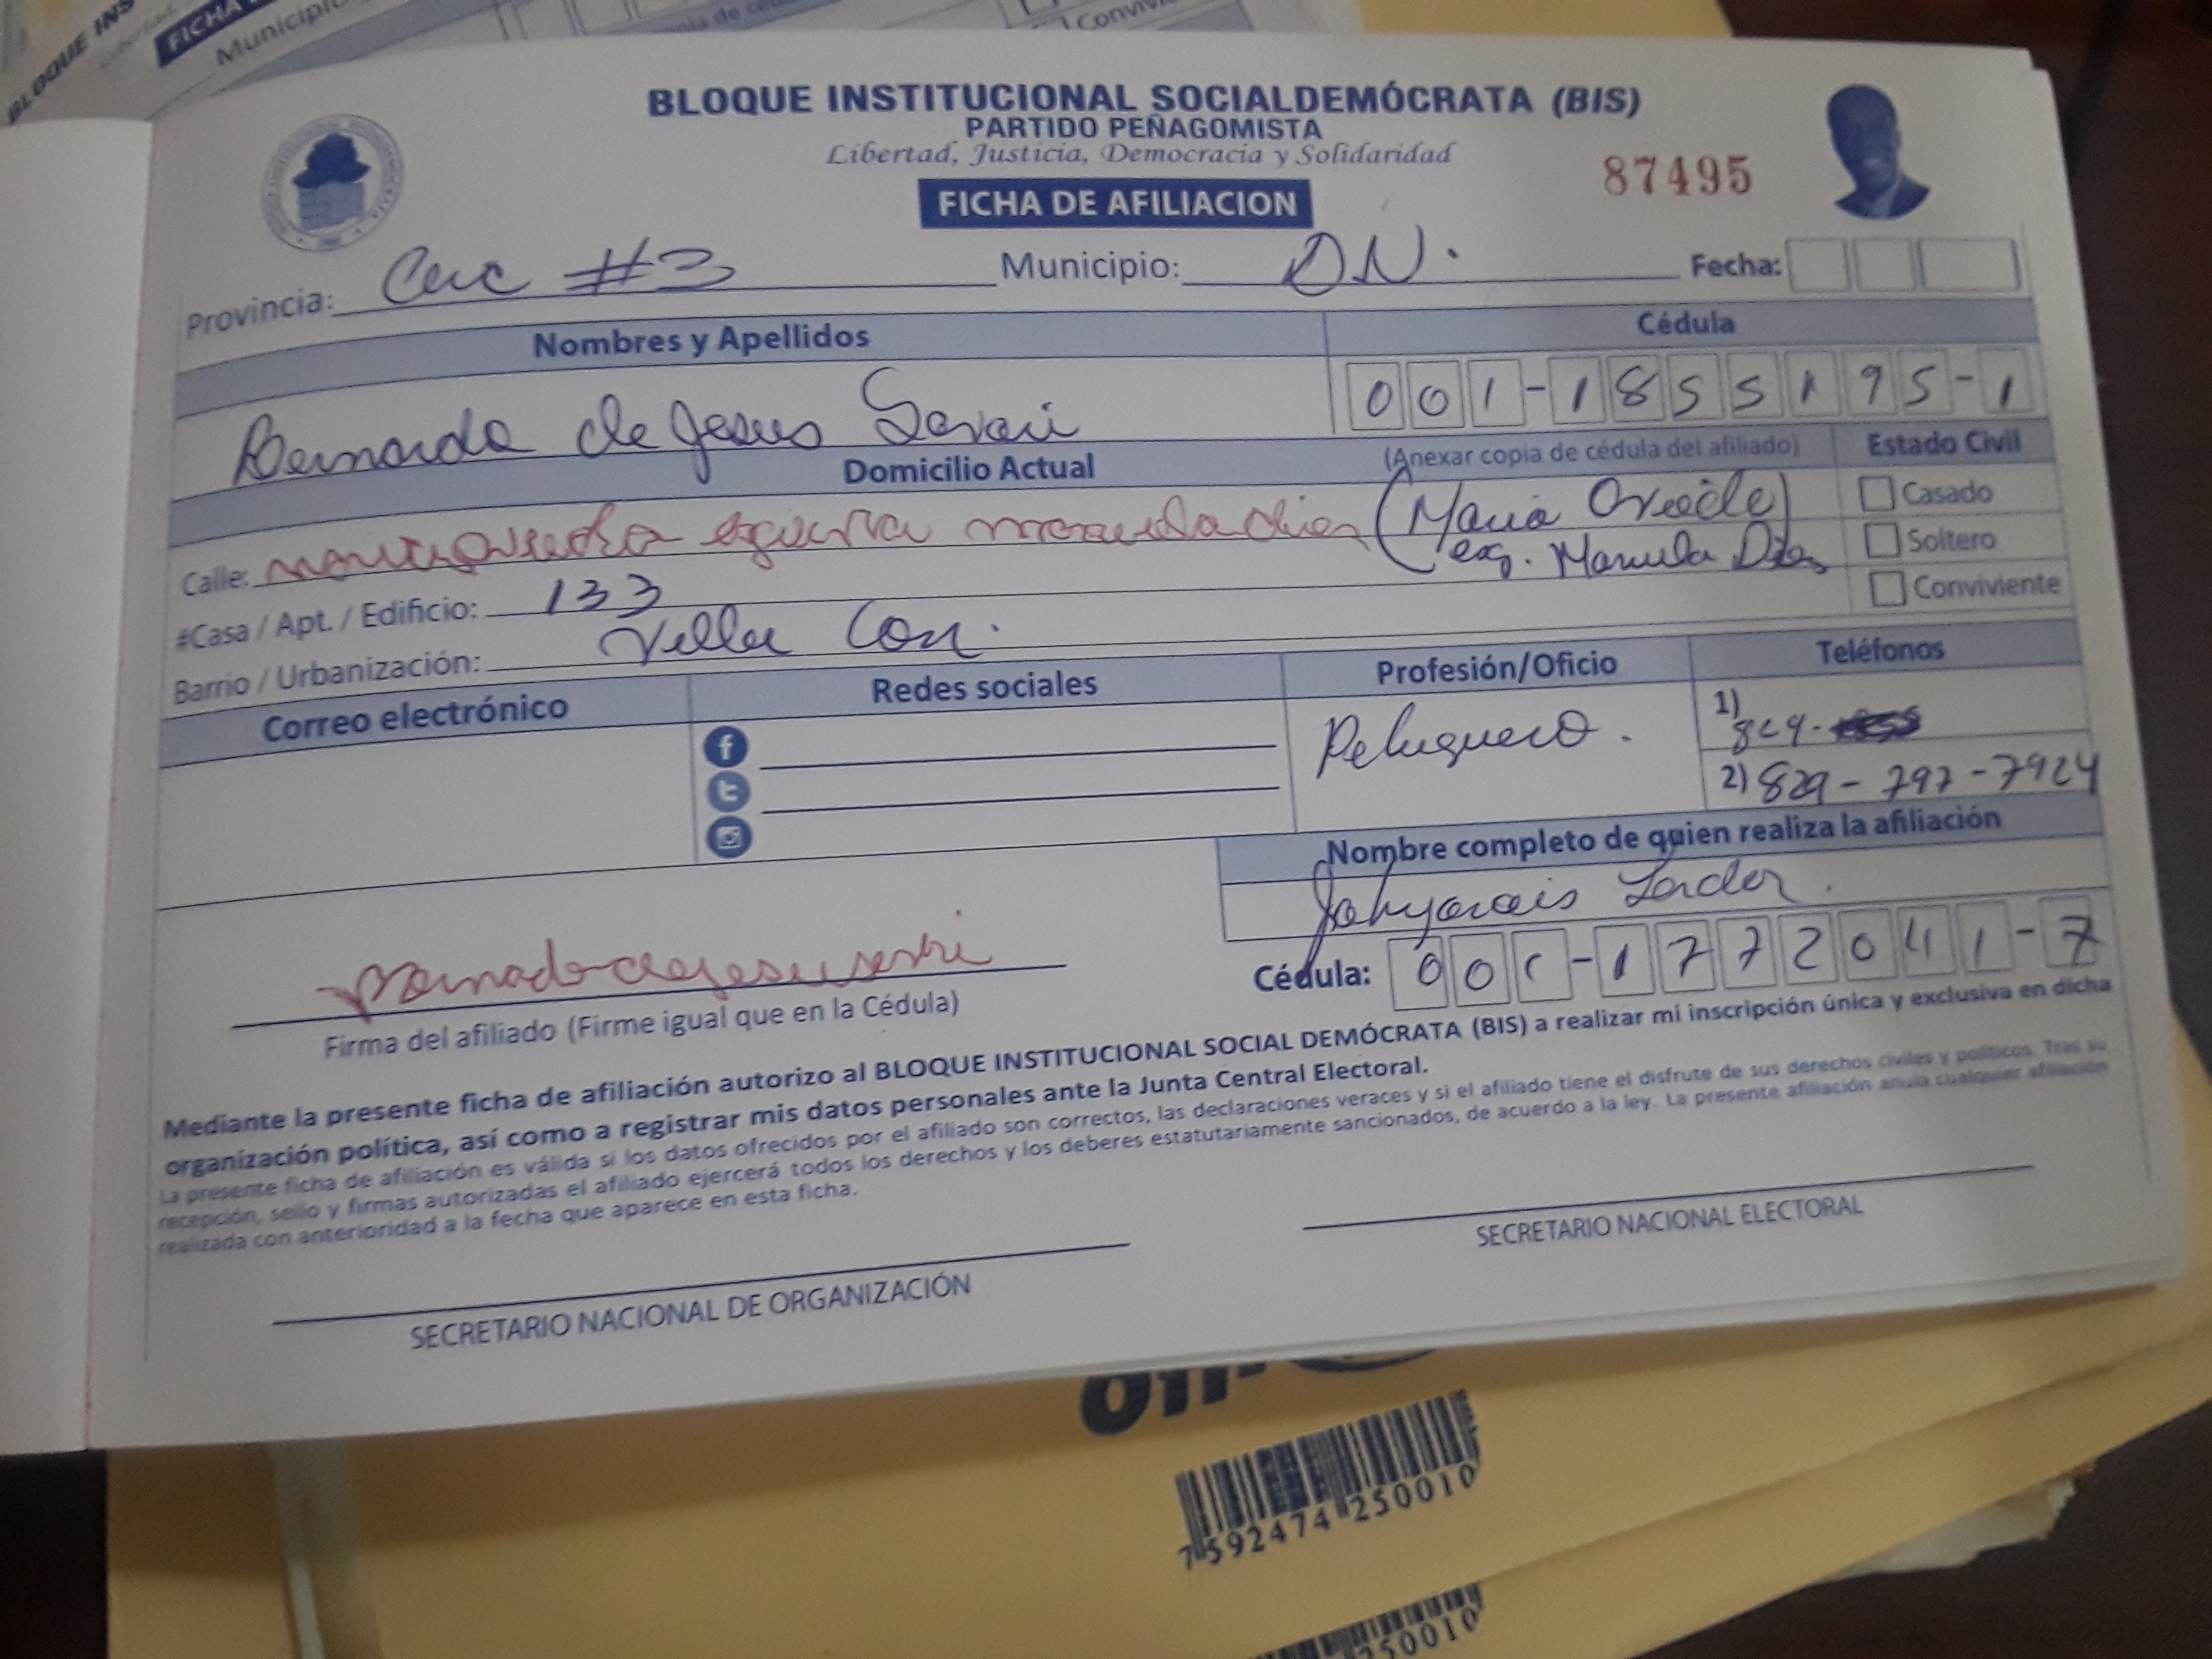 BLOQUE INS
FICHA
Municipio
Convivi
BLOQUE INSTITUCIONAL SOCIALDEMÓCRATA (BIS)
PARTIDO PEÑAGOMISTA
Libertad, Justicia, Democracia y Solidaridad
87495
FICHA DE AFILIACION
Provincia: Circ #3 Municipio: D.N. Fecha:
Nombres y Apellidos Cédula
de Jesus 001-1855195-1
Domicilio Actual (Anexar copia de cédula del afiliado) Estado Civil
Calle: (Maria Casado
esq. Manuela Diaz Soltero
#Casa / Apt. / Edificio: 133 Conviviente
Barrio / Urbanización: Villa Con.
Correo electrónico Redes sociales Profesión/Oficio Teléfonos
Peluquero. 1) 829-
2) 829-797-7924
Nombre completo de quien realiza la afiliación
Cédula: 001-1772041-7
Firma del afiliado (Firme igual que en la Cédula)
Mediante la presente ficha de afiliación autorizo al BLOQUE INSTITUCIONAL SOCIAL DEMÓCRATA (BIS) a realizar mi inscripción única y exclusiva en dicha
organización política, así como a registrar mis datos personales ante la Junta Central Electoral.
La presente ficha de afiliación es válida si los datos ofrecidos por el afiliado son correctos, las declaraciones veraces y si el afiliado tiene el disfrute de sus derechos civiles y políticos. Tras su
recepción, sello y firmas autorizadas el afiliado ejercerá todos los derechos y los deberes estatutariamente sancionados, de acuerdo a la ley. La presente afiliación anula cualquier afiliación
realizada con anterioridad a la fecha que aparece en esta ficha.
SECRETARIO NACIONAL DE ORGANIZACIÓN SECRETARIO NACIONAL ELECTORAL
7 592474 250010
250010